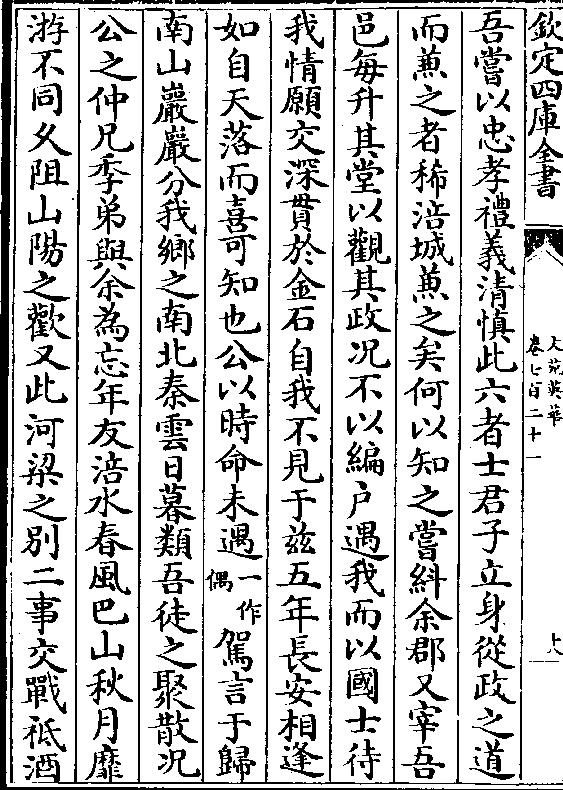 欽定四庫全書
文苑英華
卷七百二十一
十八
吾嘗以忠孝禮義清慎此六者士君子立身從政之道
而兼之者稀涪城兼之矣何以知之嘗糾余郡又宰吾
邑每升其堂以觀其政况不以編户遇我而以國士待
我情願交深貫於金石自我不見于兹五年長安相逢
如自天落而喜可知也公以時命未遇一作偶駕言于歸
南山巖巖分我鄉之南北秦雲日暮類吾徒之聚散况
公之仲兄季弟與余為忘年友涪水春風巴山秋月靡
游不同夂阻山陽之歡又此河梁之别二事交戰祗酒